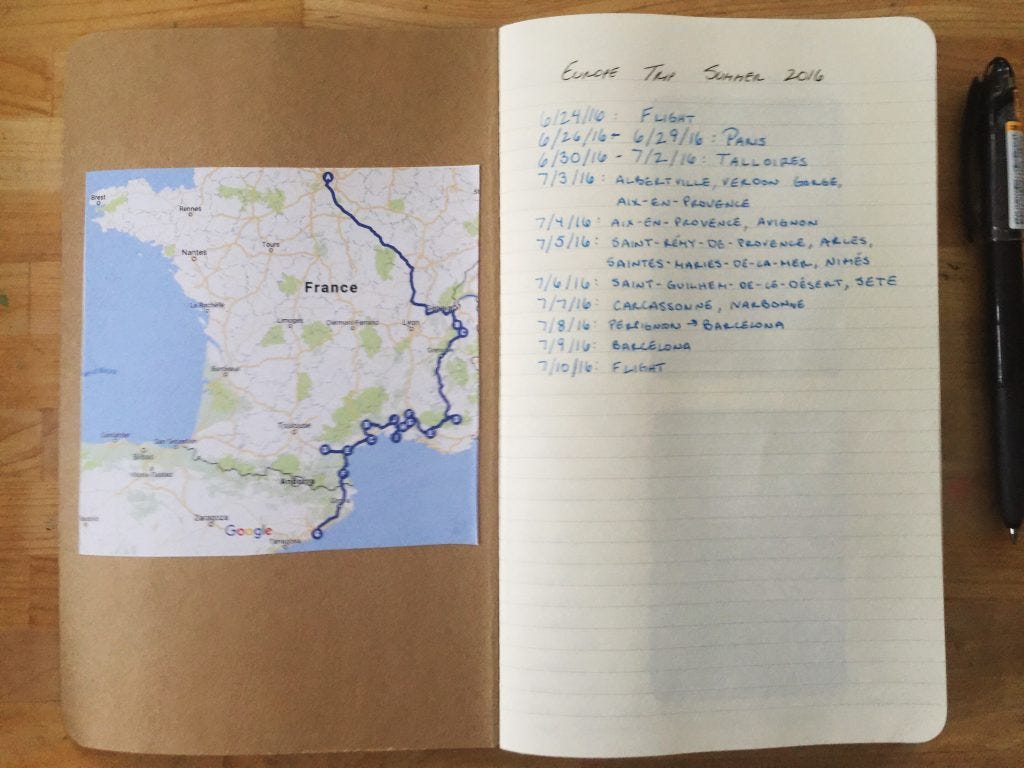 Brest
Rennes
Nantes
Tours
France
La Rochelle
Limoges
Clermont-Ferrand
Lyon
Bordeaux
Toulouse
Santander
San Sebastian
Bilbao
Andorra
Zaragoza
Google
Tarragona
EUROPE TRIP SUMMER 2016
6/24/16: FLIGHT
6/26/16 - 6/29/16: PARIS
6/30/16 - 7/2/16: TALLOIRES
7/3/16: ALBERTVILLE, VERDON GORGE,
AIX-EN-PROVENCE
7/4/16: AIX-EN-PROVENCE, AVIGNON
7/5/16: SAINT-RÉMY-DE-PROVENCE, ARLES,
SAINTES-MARIES-DE-LA-MER, NIMÉS
7/6/16: SAINT-GUILHEM-DE-LE-DÉSERT, SETE
7/7/16: CARCASSONNE, NARBONNE
7/8/16: PERPIGNON → BARCELONA
7/9/16: BARCELONA
7/10/16: FLIGHT